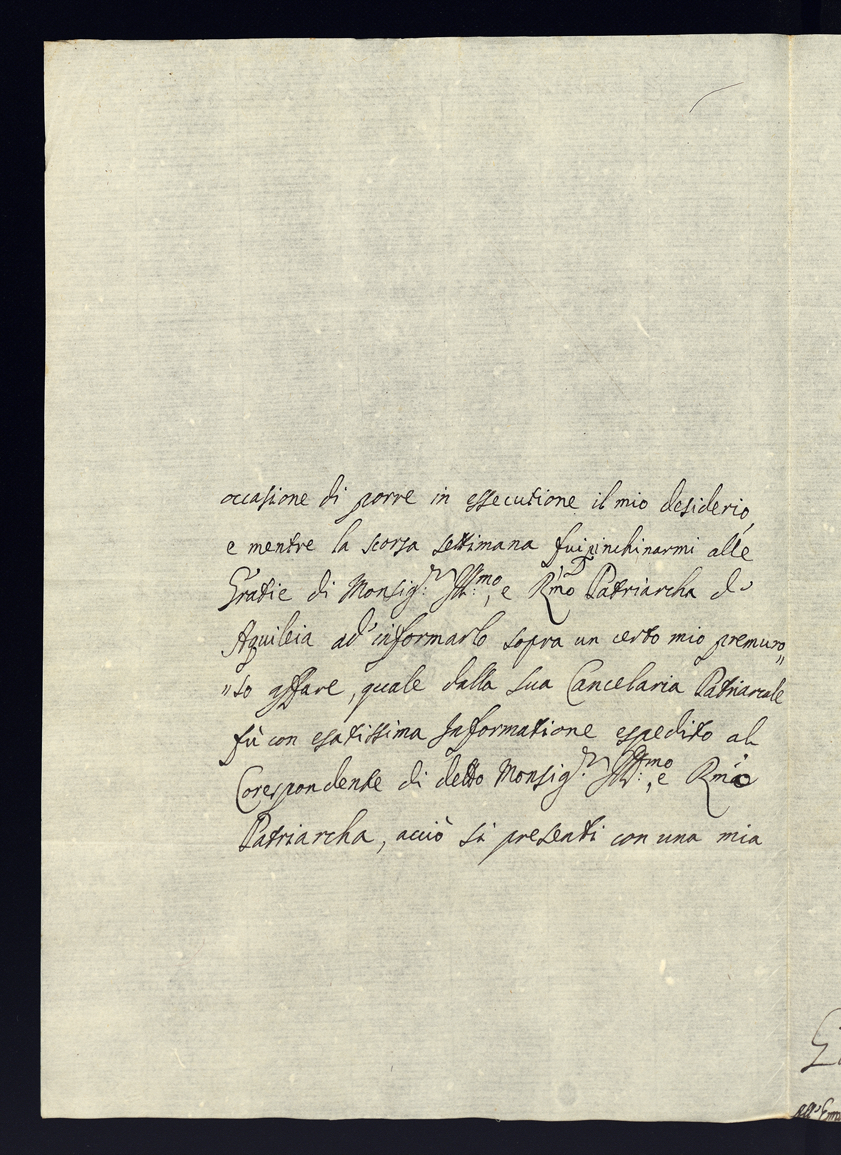 occasione di porre in essecutione il mio desiderio,
e mentre la scorsa settimana fui inchinarmi alle
Gratie di Monsig.r Ill.mo, e Rmo Patriarcha d'
Aquileia ad informarlo sopra un certo mio premuro„
„so affare, quale dalla sua Cancelaria Patriarcale
fù con esatissima Informatione espedito al
Corespondente di detto Monsig.r Ill.mo, e Rmo
Patriarcha, acciò si presenti con una mia